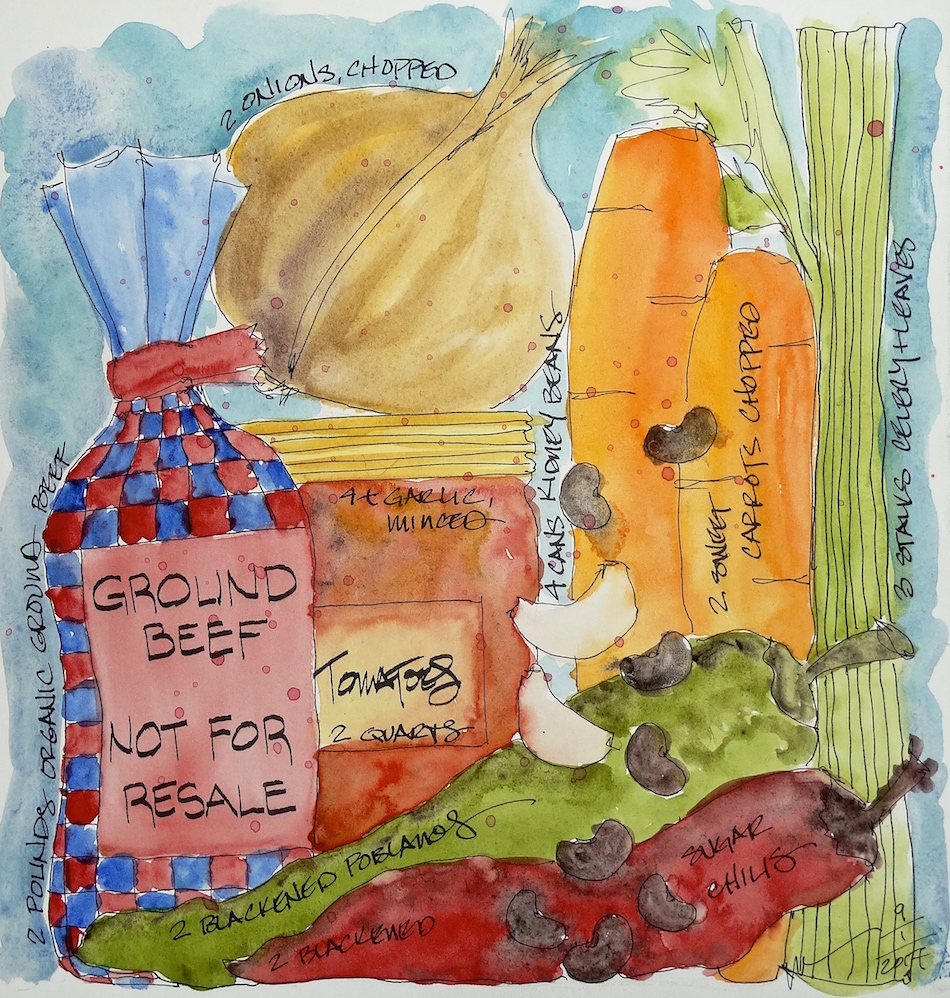 2 ONIONS, CHOPPED
2 POUNDS ORGANIC GROUND BEEF
GROUND
BEEF
NOT FOR
RESALE
4 t GARLIC,
MINCED
TOMATOES
2 QUARTS
4 CANS KIDNEY BEANS
2 SWEET
CARROTS CHOPPED
3 STALKS CELERY + LEAVES
2 BLACKENED POBLANOS
2 BLACKENED
SUGAR
CHILIS